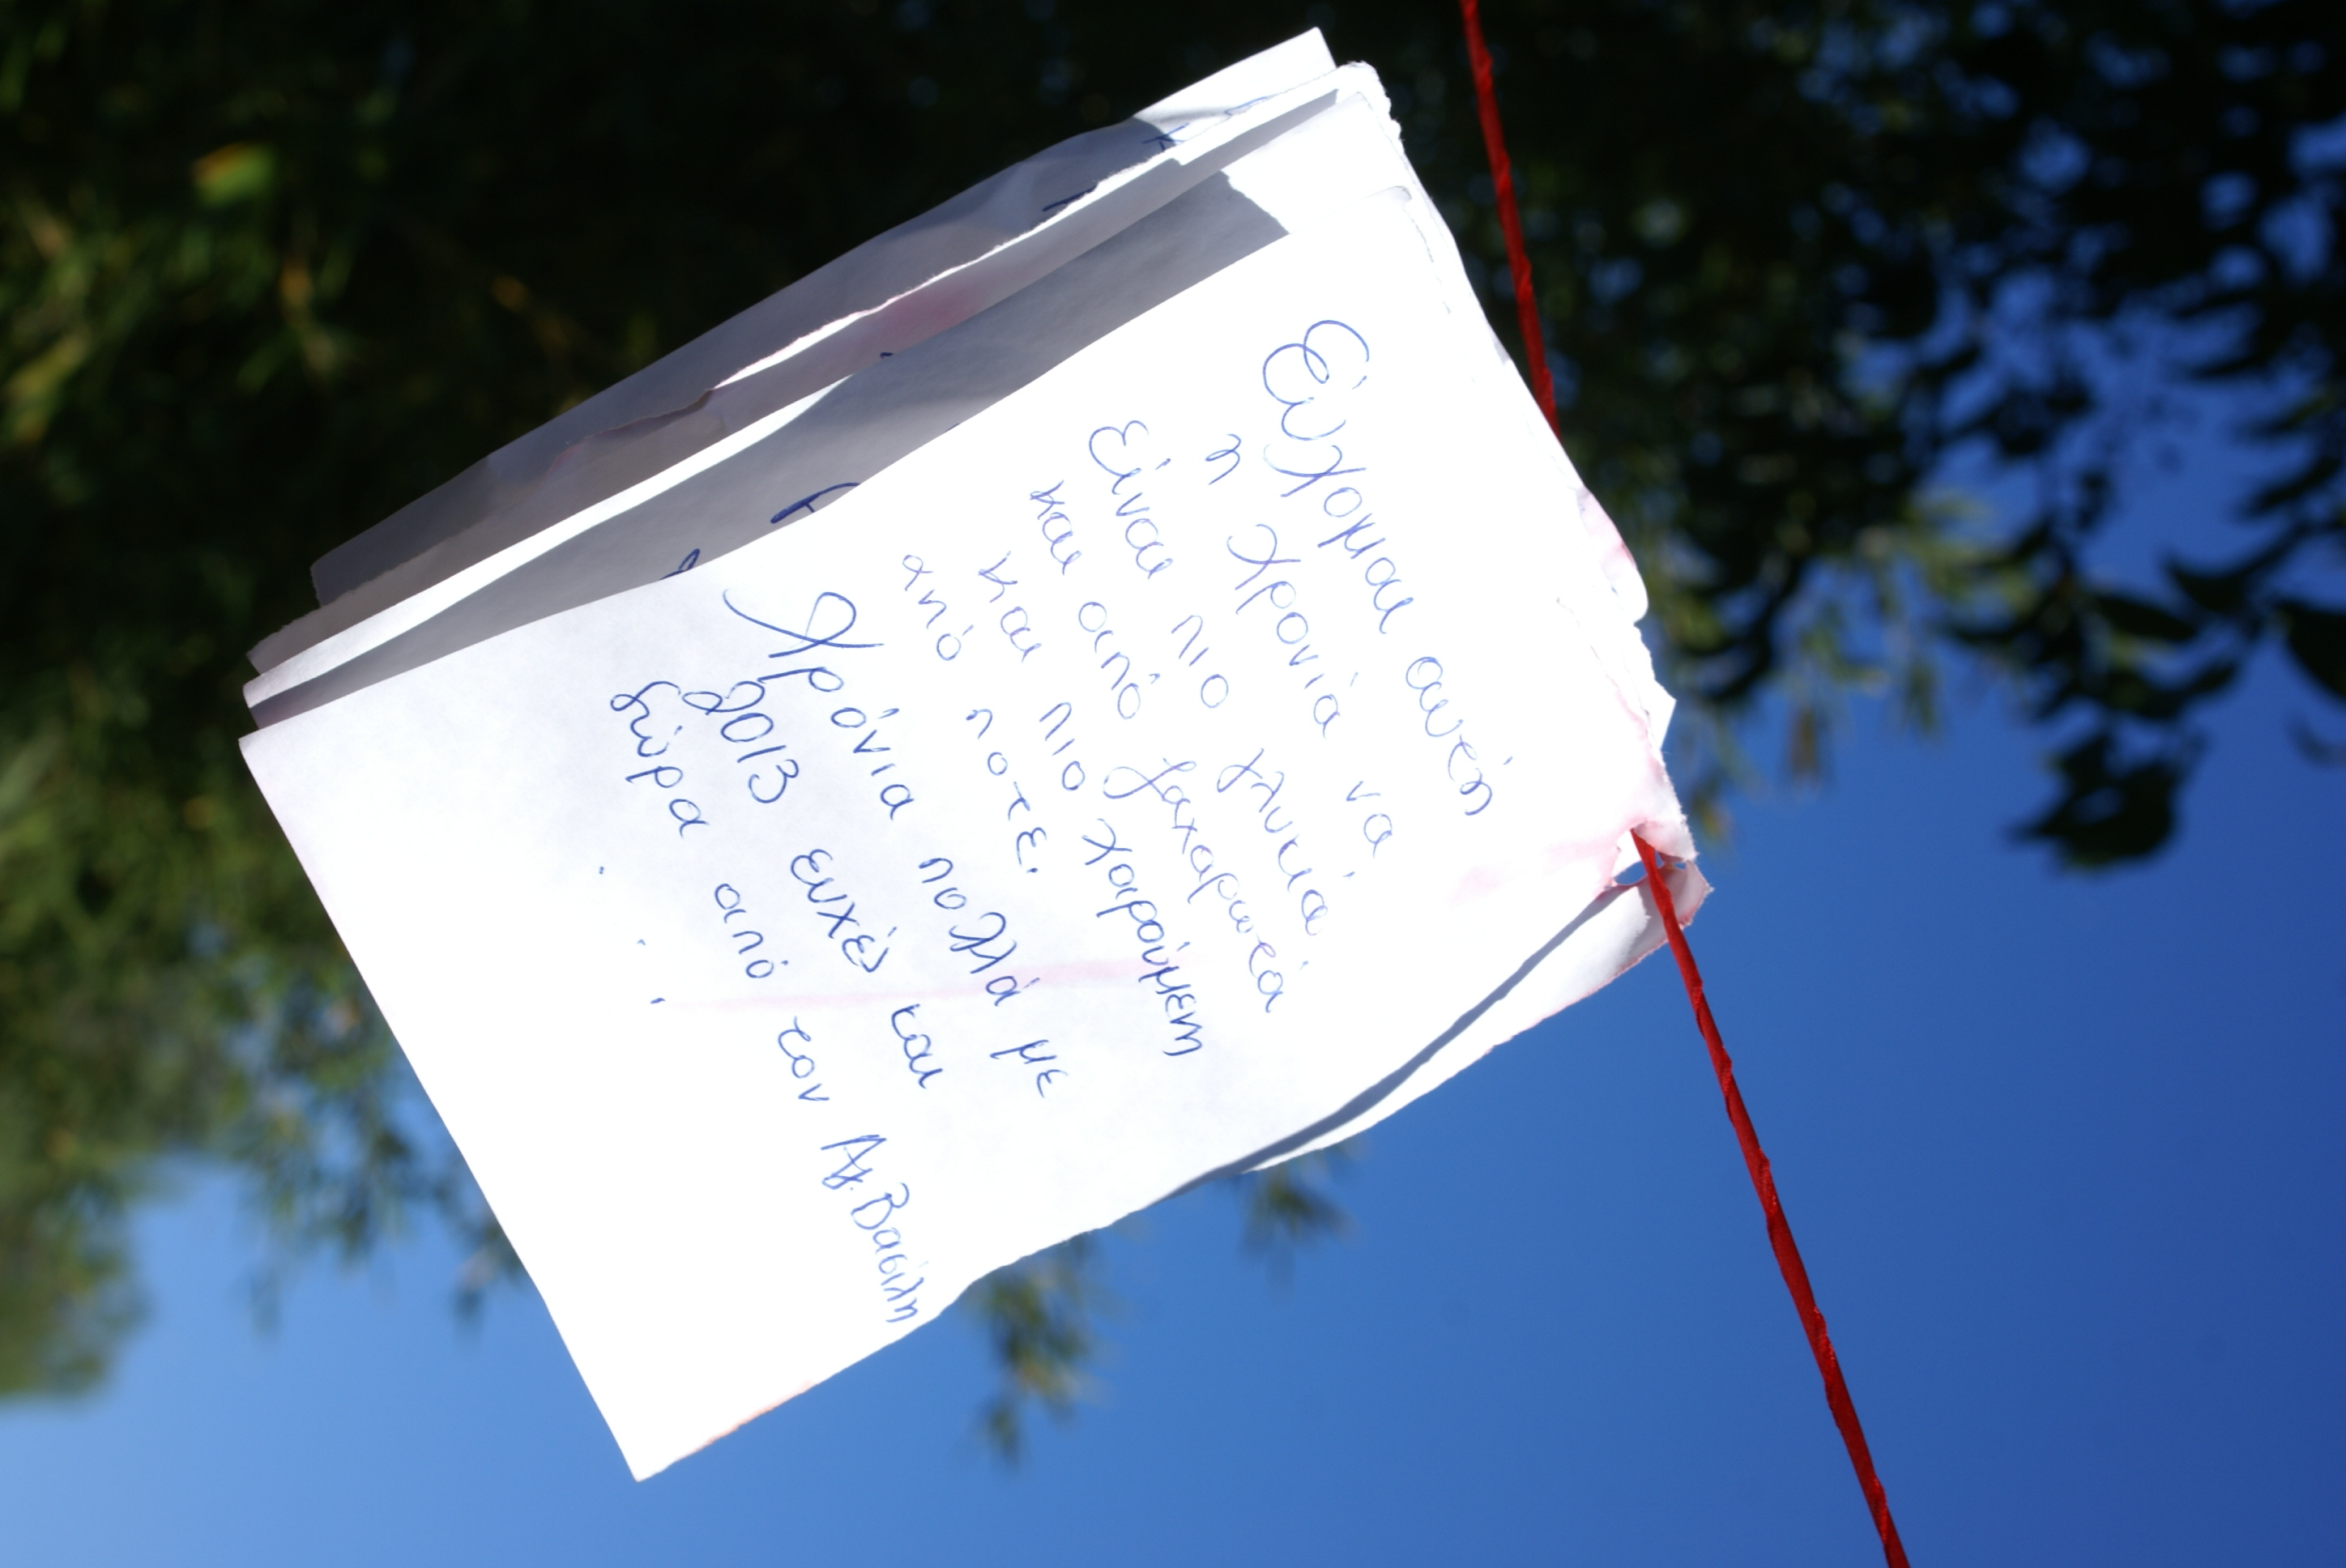 Εύχομαι αυτή
η χρονιά να
είναι πιο γλυκιά
και από ζαχαρωτά
και πιο χαρούμενη
από ποτε.
Χρόνια πολλά με
2013 ευχές και
δώρα από τον Αγ. Βασίλη
. . .